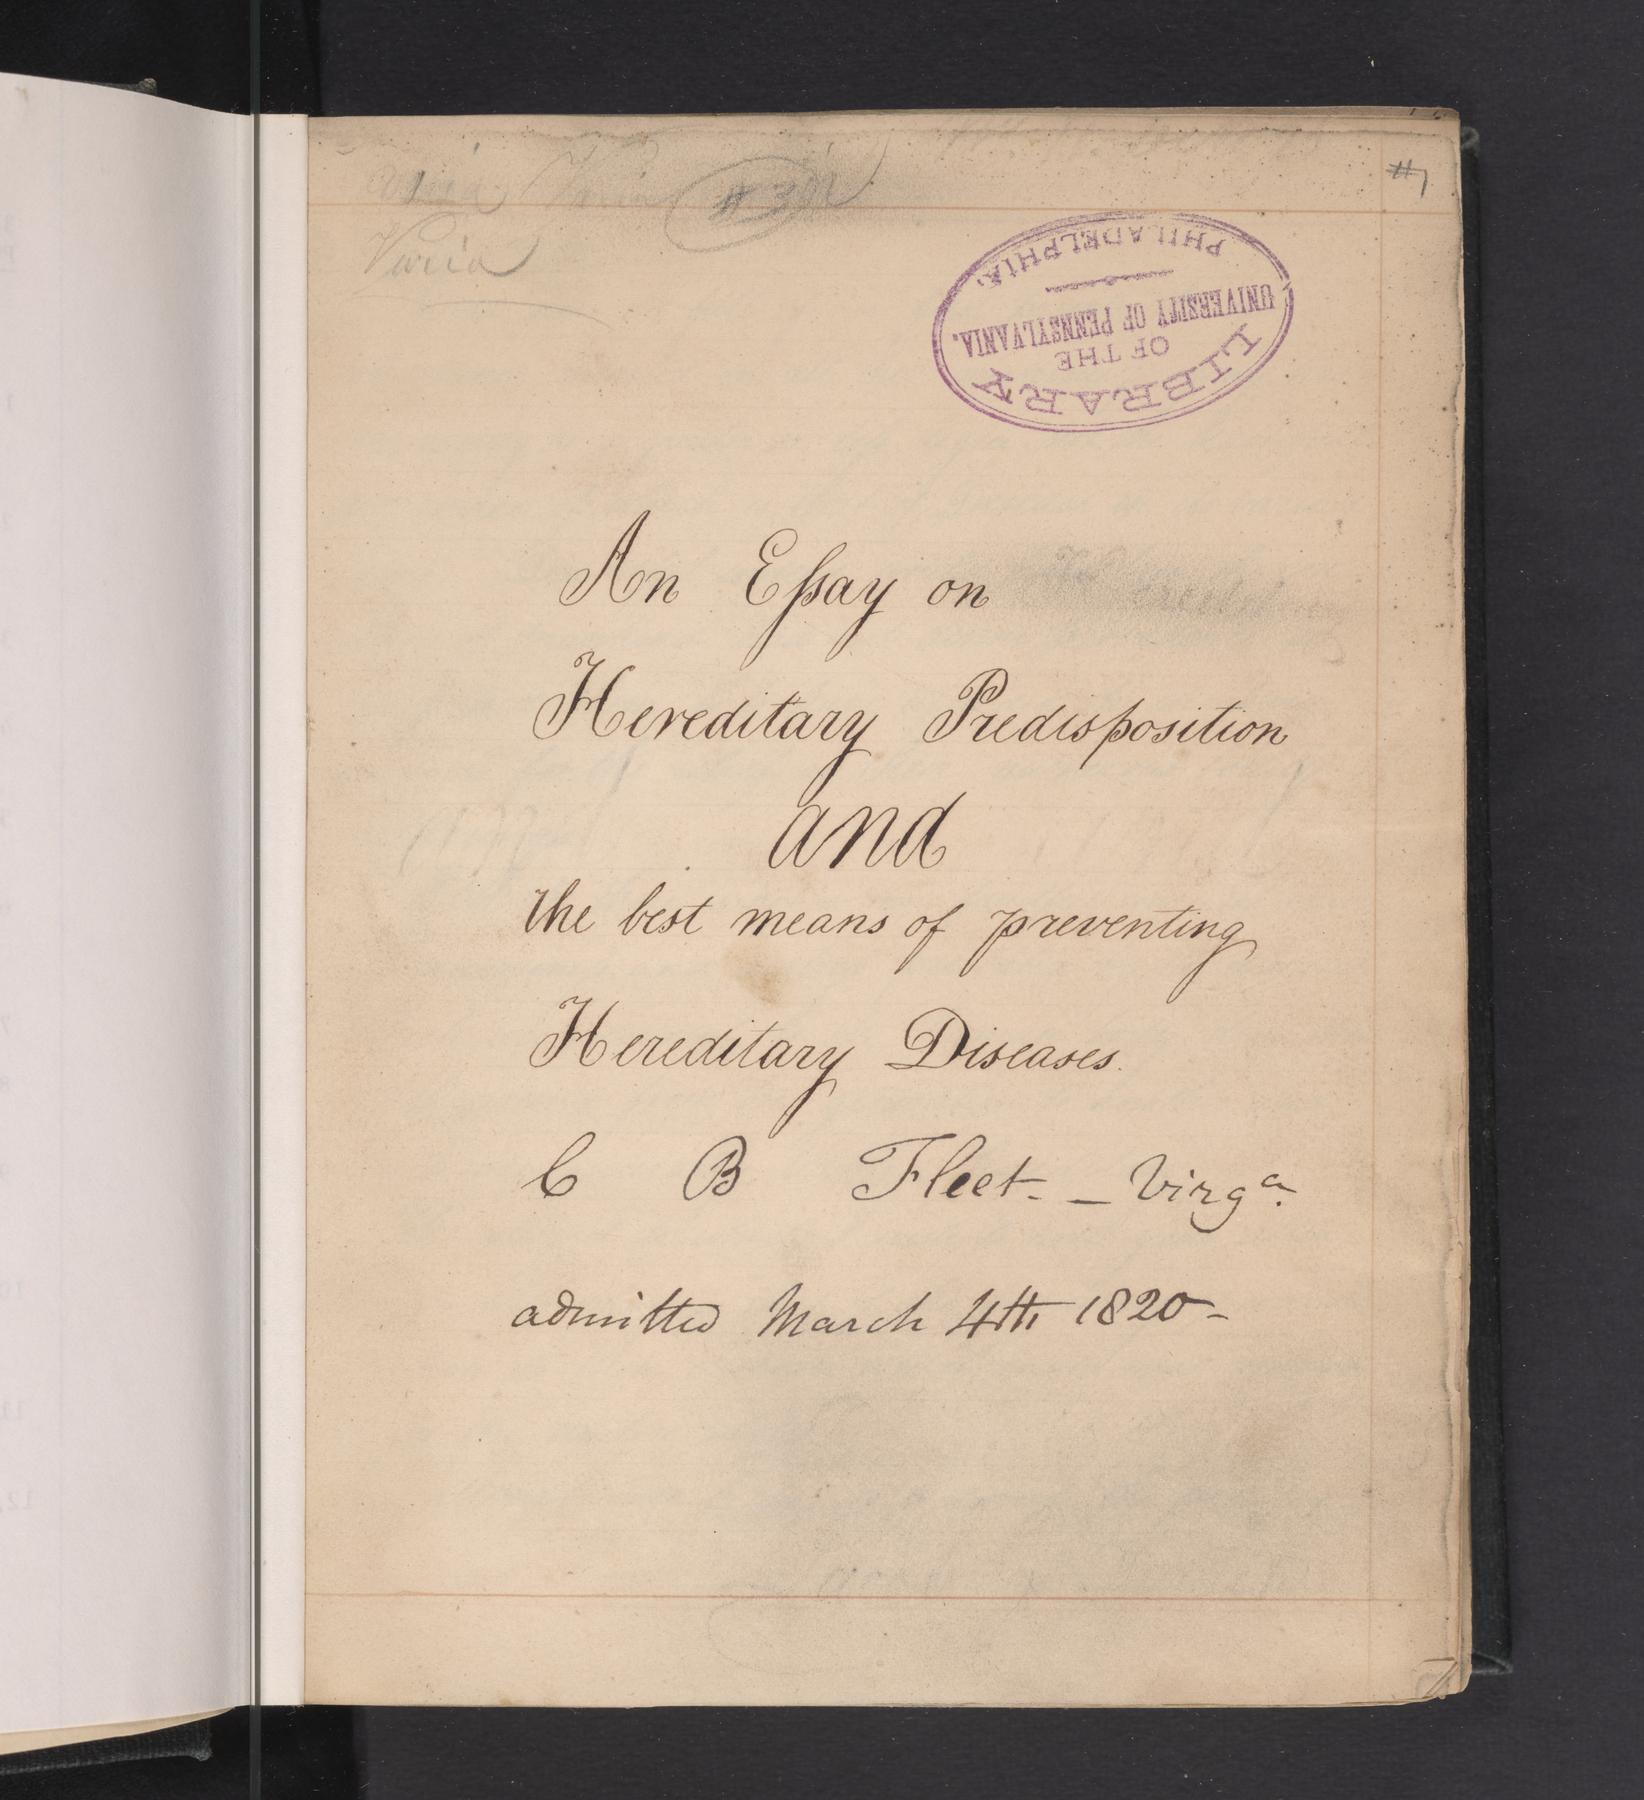 #7
Varia
LIBRARY
OF THE
UNIVERSITY OF PENNSYLVANIA.
PHILADELPHIA.
An Eſsay on
Hereditary Predisposition
and
the best means of preventing
Hereditary Diseases.
C B Fleet - Virgᵃ.
admitted March 4th 1820 -